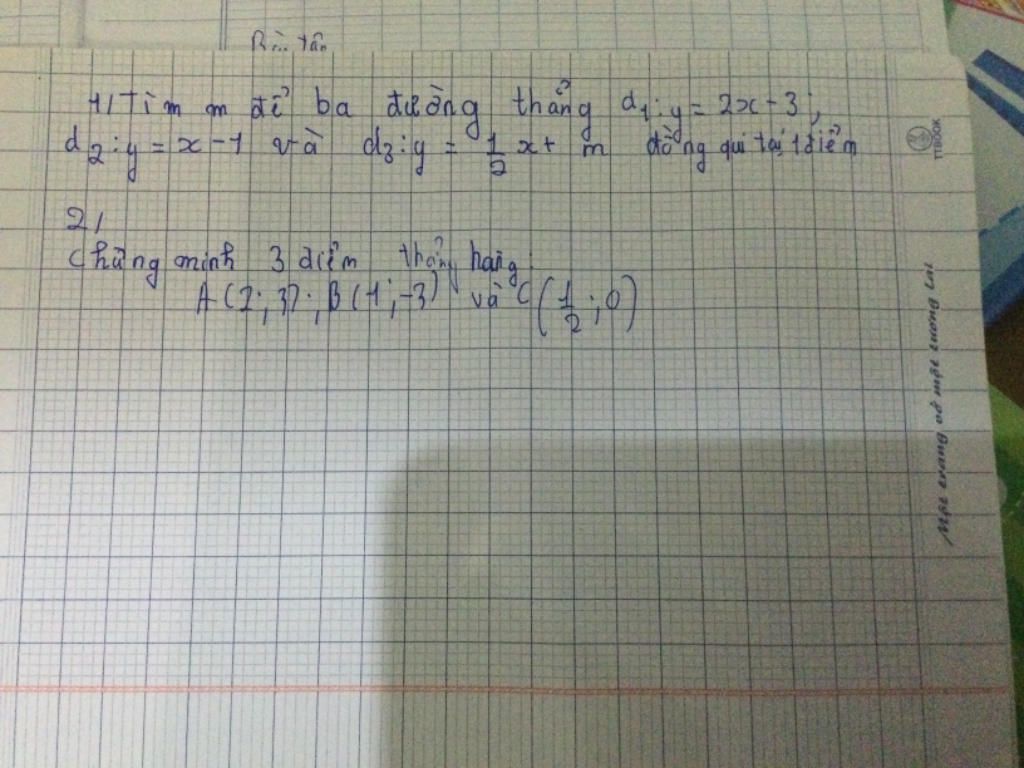 Bài tập
1/ Tìm m để ba đường thẳng d1: y = 2x - 3;
d2: y = x - 1 và d3: y = 1/2 x + m đồng qui tại 1 điểm
2/
chứng minh 3 điểm thẳng hàng:
A(2; 3); B(1; -3) và C(1/2; 0)
TTBOOK
Một trang vở một tương lai